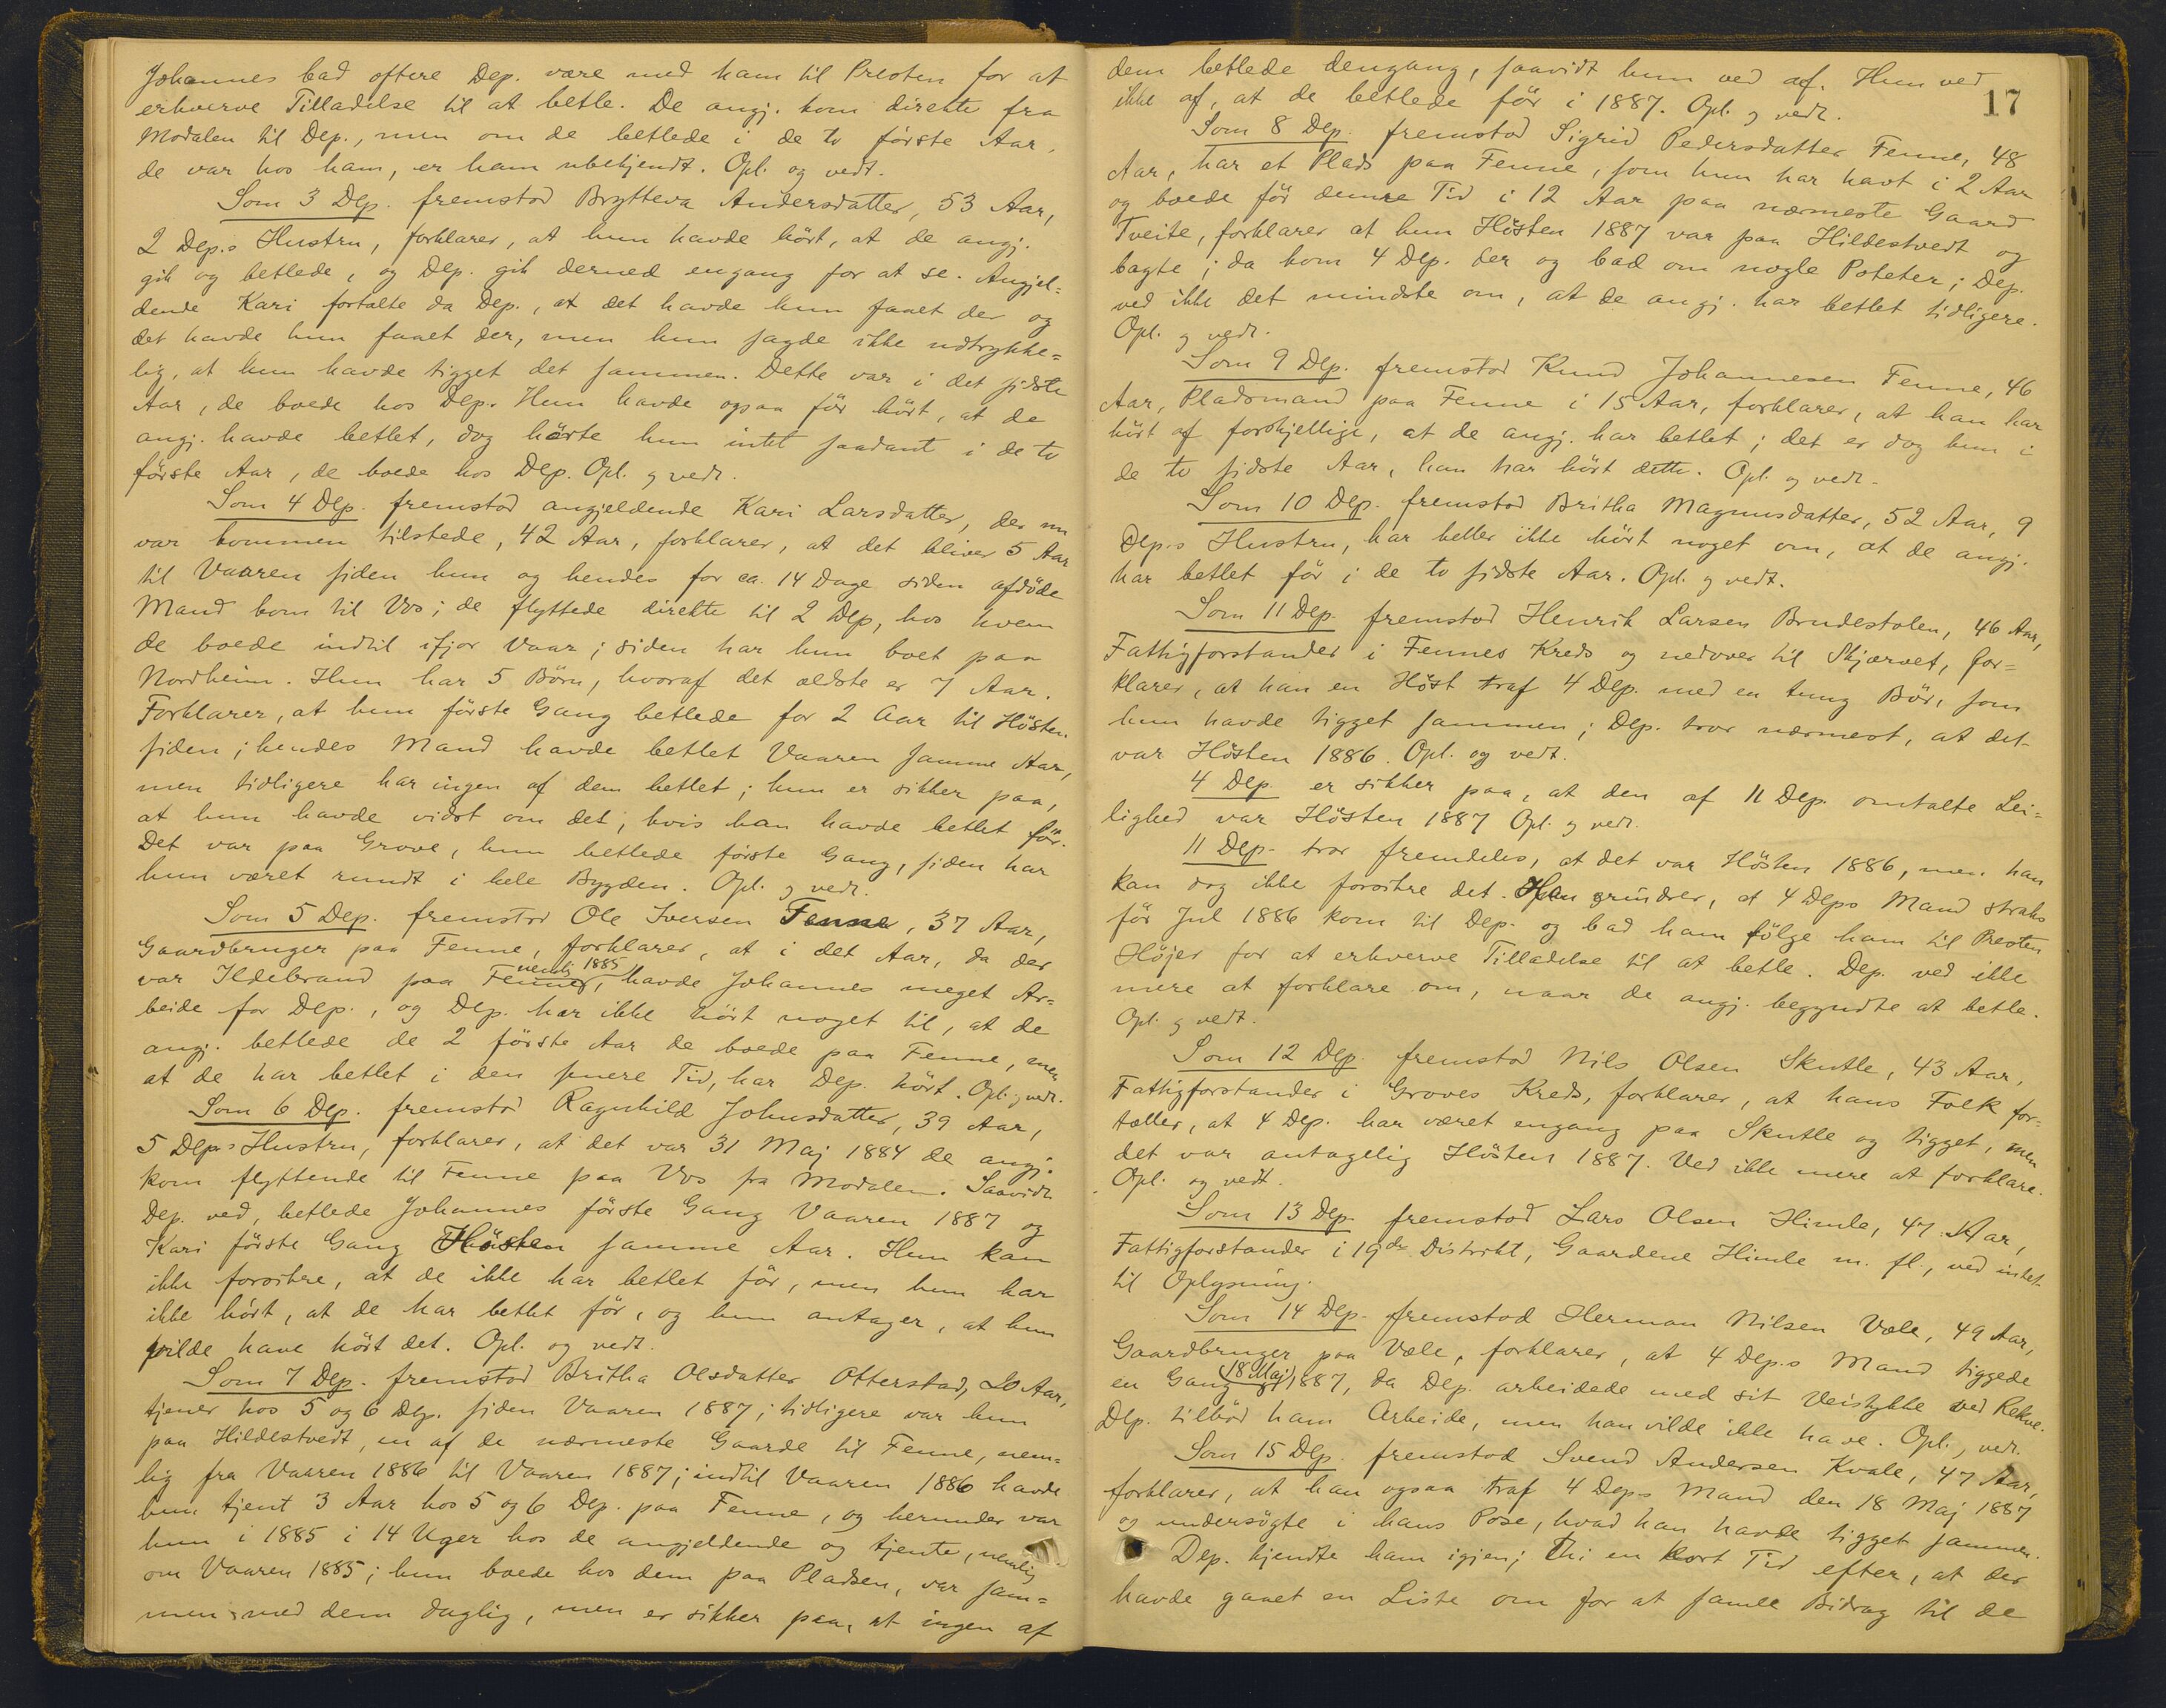 Johannes bad oftere Dep. være med ham til Presten for at
erhverve Tilladelse til at betle. De angj. kom direkte fra
Modalen til Dep., men om de betlede i de to første Aar,
de var hos ham, er ham ubekjendt. Opl. og vedt.
Som 3 Dep. fremstod Brytteva Andersdatter, 53 Aar,
2 Dep.s Hustru, forklarer, at hun havde hört, at de angj.
gik og betlede, og Dep. gik derned engang for at se. Angjel=
dende Kari fortalte da Dep., at det havde hun faaet der og
det havde hun faaet der, men hun sagde ikke udtrykke=
lig, at hun havde tigget det sammen. Dette var i det sidste
Aar, de boede hos Dep. Hun havde ogsaa för hört, at de
angj. havde betlet, dog hörte hun intet saadant i de to
förste Aar, de boede hos Dep. Opl. og vedt.
Som 4 Dep. fremstod angjeldende Kari Larsdatter, der nu
var kommen tilstede, 42 Aar, forklarer, at det bliver 5 Aar
til Vaaren siden hun og hendes for ca. 14 Dage siden afdöde
Mand kom til Vos; de flyttede direkte til 2 Dep, hos hvem
de boede indtil ifjor Vaar; siden har hun boet paa
Nordheim. Hun har 5 Börn, hvoraf det ældste er 7 Aar.
Forklarer, at hun förste Gang betlede for 2 Aar til Hösten
siden; hendes Mand havde betlet Vaaren samme Aar,
men tidligere har ingen af dem betlet; hun er sikker paa,
at hun havde vidst om det, hvis han havde betlet för.
Det var paa Grove, hun betlede förste Gang, siden har
hun været rundt i hele Bygden. Opl. og vedt.
Som 5 Dep. fremstod Ole Iversen Fenne, 37 Aar,
Gaardbruger paa Fenne, forklarer, at i det Aar, da der
var Ildebrand paa Fenne, nemlig 1885, havde Johannes meget Ar=
beide for Dep., og Dep. har ikke hört noget til, at de
angj. betlede de 2 förste Aar de boede paa Fenne, men
at de har betlet i den senere Tid, har Dep. hört. Opl. og vedt.
Som 6 Dep. fremstod Ragnhild Johnsdatter, 39 Aar,
5 Dep.s Hustru, forklarer, at det var 31 Maj 1884 de angj.
kom flyttende til Fenne paa Vos fra Modalen. Saavidt
Dep. ved, betlede Johannes förste Gang Vaaren 1887 og
Kari förste Gang Hösten samme Aar. Hun kan
ikke forsikre, at de ikke har betlet för, men hun har
ikke hört, at de har betlet för, og hun antager, at hun
vilde have hört det. Opl. og vedt.
Som 7 Dep. fremstod Britha Olsdatter Otterstad, 20 Aar,
tjener hos 5 og 6 Dep. siden Vaaren 1887; tidligere var hun
paa Hildestvedt, en af de nærmeste Gaarde til Fenne, nem=
lig fra Vaaren 1886 til Vaaren 1887; indtil Vaaren 1886 havde
hun tjent 3 Aar hos 5 og 6 Dep. paa Fenne, og herunder var
hun i 1885 i 14 Uger hos de angjeldende og tjente, nemlig
om Vaaren 1885; hun boede hos dem paa Pladsen, var sam=
men med dem daglig, men er sikker paa, at ingen af
17
dem betlede dengang, saavidt hun ved af. Hun ved
ikke af, at de betlede för i 1887. Opl. og vedt.
Som 8 Dep. fremstod Sigrid Pedersdatter Fenne, 48
Aar, har et Plads paa Fenne, som hun har havt i 2 Aar
og boede för denne Tid i 12 Aar paa nærmeste Gaard
Tveite, forklarer at hun Hösten 1887 var paa Hildestvedt og
bagte; da kom 4 Dep. der og bad om nogle Poteter; Dep.
ved ikke det mindste om, at de angj. har betlet tidligere.
Opl. og vedt.
Som 9 Dep. fremstod Knud Johannesen Fenne, 46
Aar, Pladsmand paa Fenne i 15 Aar, forklarer, at han har
hört af forskjellige, at de angj. har betlet; det er dog kun i
de to sidste Aar, han har hört dette. Opl. og vedt.
Som 10 Dep. fremstod Britha Magnusdatter, 52 Aar, 9
Dep.s Hustru, har heller ikke hört noget om, at de angj.
har betlet för i de to sidste Aar. Opl. og vedt.
Som 11 Dep. fremstod Henrik Larsen Brudestolen, 46 Aar,
Fattigforstander i Fennes Kreds og nedover til Skjærvet, for=
klarer, at han en Höst traf 4 Dep. med en tung Bör, som
hun havde tigget sammen; Dep. tror nærmest, at det
var Hösten 1886. Opl. og vedt.
4 Dep. er sikker paa, at den af 11 Dep. omtalte Lei=
lighed var Hösten 1887 Opl. og vedt.
11 Dep. tror fremdeles, at det var Hösten 1886, men han
kan dog ikke forsikre det. Han erindrer, at 4 Deps Mand straks
för Jul 1886 kom til Dep. og bad ham fölge ham til Presten
Höjer for at erhverve Tilladelse til at betle. Dep. ved ikke
mere at forklare om, naar de angj. begyndte at betle.
Opl. og vedt.
Som 12 Dep. fremstod Nils Olsen Skutle, 43 Aar,
Fattigforstander i Groves Kreds, forklarer, at hans Folk for=
tæller, at 4 Dep. har været engang paa Skutle og tigget, men
det var antagelig Hösten 1887. Ved ikke mere at forklare.
Opl. og vedt.
Som 13 Dep. fremstod Lars Olsen Himle, 47 Aar,
Fattigforstander i 19de Distrikt, Gaardene Himle m. fl., ved intet
til Oplysning.
Som 14 Dep. fremstod Herman Nilsen Væle, 49 Aar,
Gaardbruger paa Væle, forklarer, at 4 Dep.s Mand tiggede
en Gang 18 Maj 1887, da Dep. arbeidede med sit Veistykke ved Rekve.
Dep. tilböd ham Arbeide, men han vilde ikke have. Opl. og vedt.
Som 15 Dep. fremstod Svend Andersen Kvale, 47 Aar,
forklarer, at han ogsaa traf 4 Deps Mand den 18 Maj 1887
og undersögte i hans Pose, hvad han havde tigget sammen.
Dep. kjendte ham igjen; Thi en kort Tid efter, at der
havde gaaet en Liste om for at samle Bidrag til de